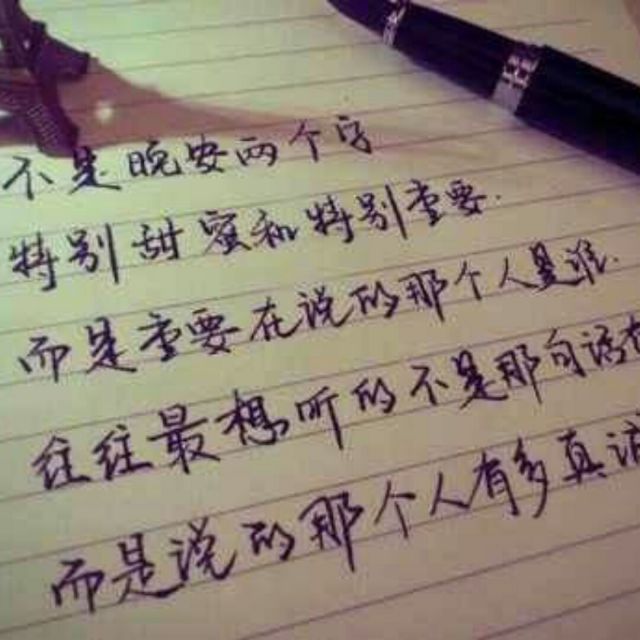 不是晚安两个字
特别甜蜜和特别重要.
而是重要在说的那个人是谁.
往往最想听的不是那句话有
而是说的那个人有多真诚